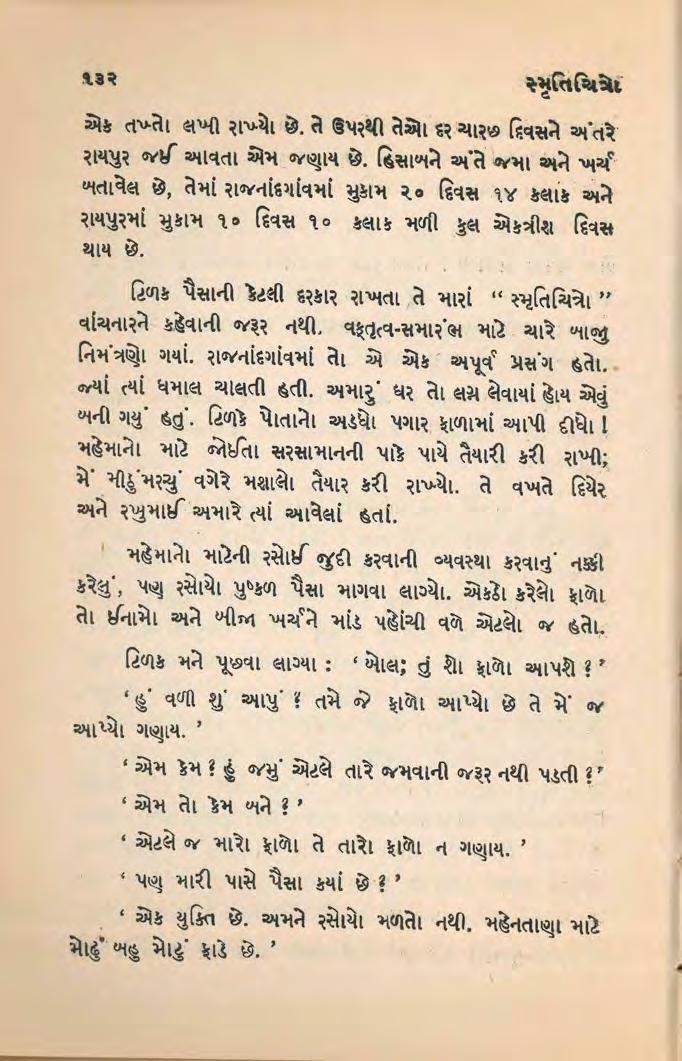 ૧૩૨
સ્મૃતિચિત્રો
એક તખ્તો લખી રાખ્યો છે. તે ઉપરથી તેઓ દર ચારછ દિવસને અંતરે
રાયપુર જઈ આવતા એમ જણાય છે. હિસાબને અંતે જમા અને ખર્ચ
બતાવેલ છે, તેમાં રાજનાંદગાંવમાં મુકામ ૨૦ દિવસ ૧૪ કલાક અને
રાયપુરમાં મુકામ ૧૦ દિવસ ૧૦ કલાક મળી કુલ એકત્રીશ દિવસ
થાય છે.
ટિળક પૈસાની કેટલી દરકાર રાખતા તે મારાં “ સ્મૃતિચિત્રો ”
વાંચનારને કહેવાની જરૂર નથી. વક્તૃત્વ-સમારંભ માટે ચારે બાજુ
નિમંત્રણો ગયાં. રાજનાંદગાંવમાં તો એ એક અપૂર્વ પ્રસંગ હતો.
જ્યાં ત્યાં ધમાલ ચાલતી હતી. અમારું ઘર તો લગ્ન લેવાયાં હોય એવું
બની ગયું હતું. ટિળકે પોતાનો અડધો પગાર ફાળામાં આપી દીધો !
મહેમાનો માટે જોઈતા સરસામાનની પાકે પાયે તૈયારી કરી રાખી;
મેં મીઠુંમરચું વગેરે મશાલો તૈયાર કરી રાખ્યો. તે વખતે દિયેર
અને રખુમાઈ અમારે ત્યાં આવેલાં હતાં.
મહેમાનો માટેની રસોઈ જુદી કરવાની વ્યવસ્થા કરવાનું નક્કી
કરેલું, પણ રસોયો પુષ્કળ પૈસા માગવા લાગ્યો. એકઠો કરેલો ફાળો
તો ઈનામો અને બીજા ખર્ચને માંડ પહોંચી વળે એટલો જ હતો.
ટિળક મને પૂછવા લાગ્યા : ‘ બોલ; તું શો ફાળો આપશે ? ’
‘ હું વળી શું આપું ? તમે જે ફાળો આપ્યો છે તે મેં જ
આપ્યો ગણાય. ’
‘ એમ કેમ ? હું જમું એટલે તારે જમવાની જરૂર નથી પડતી ? ’
‘ એમ તો કેમ બને ? ’
‘ એટલે જ મારો ફાળો તે તારો ફાળો ન ગણાય. ’
‘ પણ મારી પાસે પૈસા કયાં છે ? ’
‘ એક યુક્તિ છે. અમને રસોયો મળતો નથી. મહેનતાણા માટે
મોઢું બહુ મોટું ફાડે છે. ’